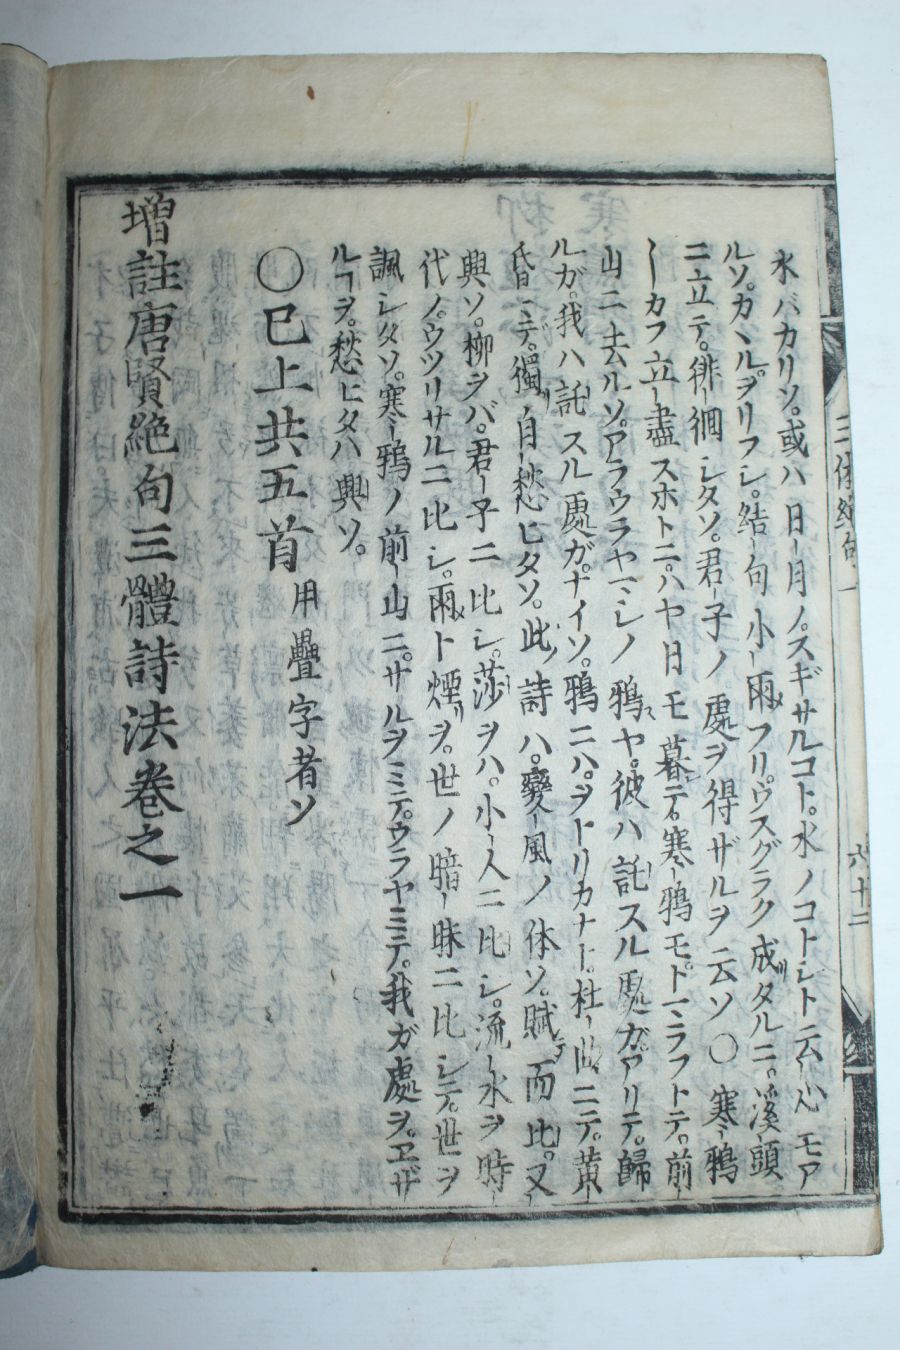 水バカリソ。或ハ日月ノ。スギサルコト。水ノコトシト云心モア
ルソ。カヽルヲリフシ。結句小雨フリ。ウスグラク成タルニ。溪頭
ニ立テ。徘徊シタソ。君子ノ處ヲ得ザルヲ云ソ〇寒鴉
カフ立盡スホトニ。ハヤ日モ暮テ。寒鴉モ。トミラフトテ。前
山ニ去ルソ。アラウラヤマシノ鴉ヤ。彼ハ託スル處ガアリテ。歸
ルガ。我ハ託スル處ガ。ナイソ。鴉ニハ。ヲトリカナト。杜曲ニテ。黄
昏ニ。獨自愁ヒタソ。此詩ハ。變風ノ体ソ。賦而比。又
興ソ。柳ヲバ。君子ニ比シ。莎ヲハ。小人ニ比シ。流水ヲ時
代ノ。ウツリサルニ比シ。雨ト煙ヲ。世ノ暗昧ニ比シテ。世ヲ
諷シタソ。寒鴉ノ前山ニ。サルヲミテ。ウラヤミテ。我ガ處ヲ。ヱザ
ルヿヲ。愁ヒタハ興ソ。
〇已上共五首 用疊字者ソ
增註唐賢絶句三體詩法卷之一
三体絶句一
六十二